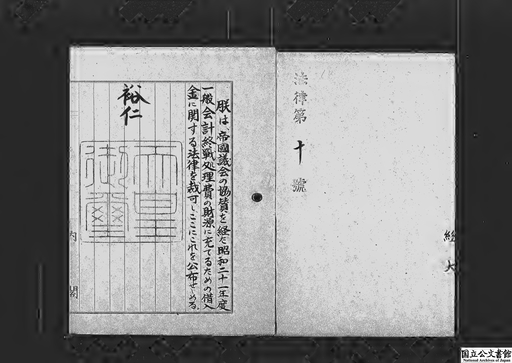 法律第十號
朕は、帝國議会の協賛を経た昭和二十一年度
一般会計終戰処理費の財源に充てるための借入
金に関する法律を裁可し、ここにこれを公布せしめる。
裕仁
天皇御璽
内閣
国立公文書館
National Archives of Japan